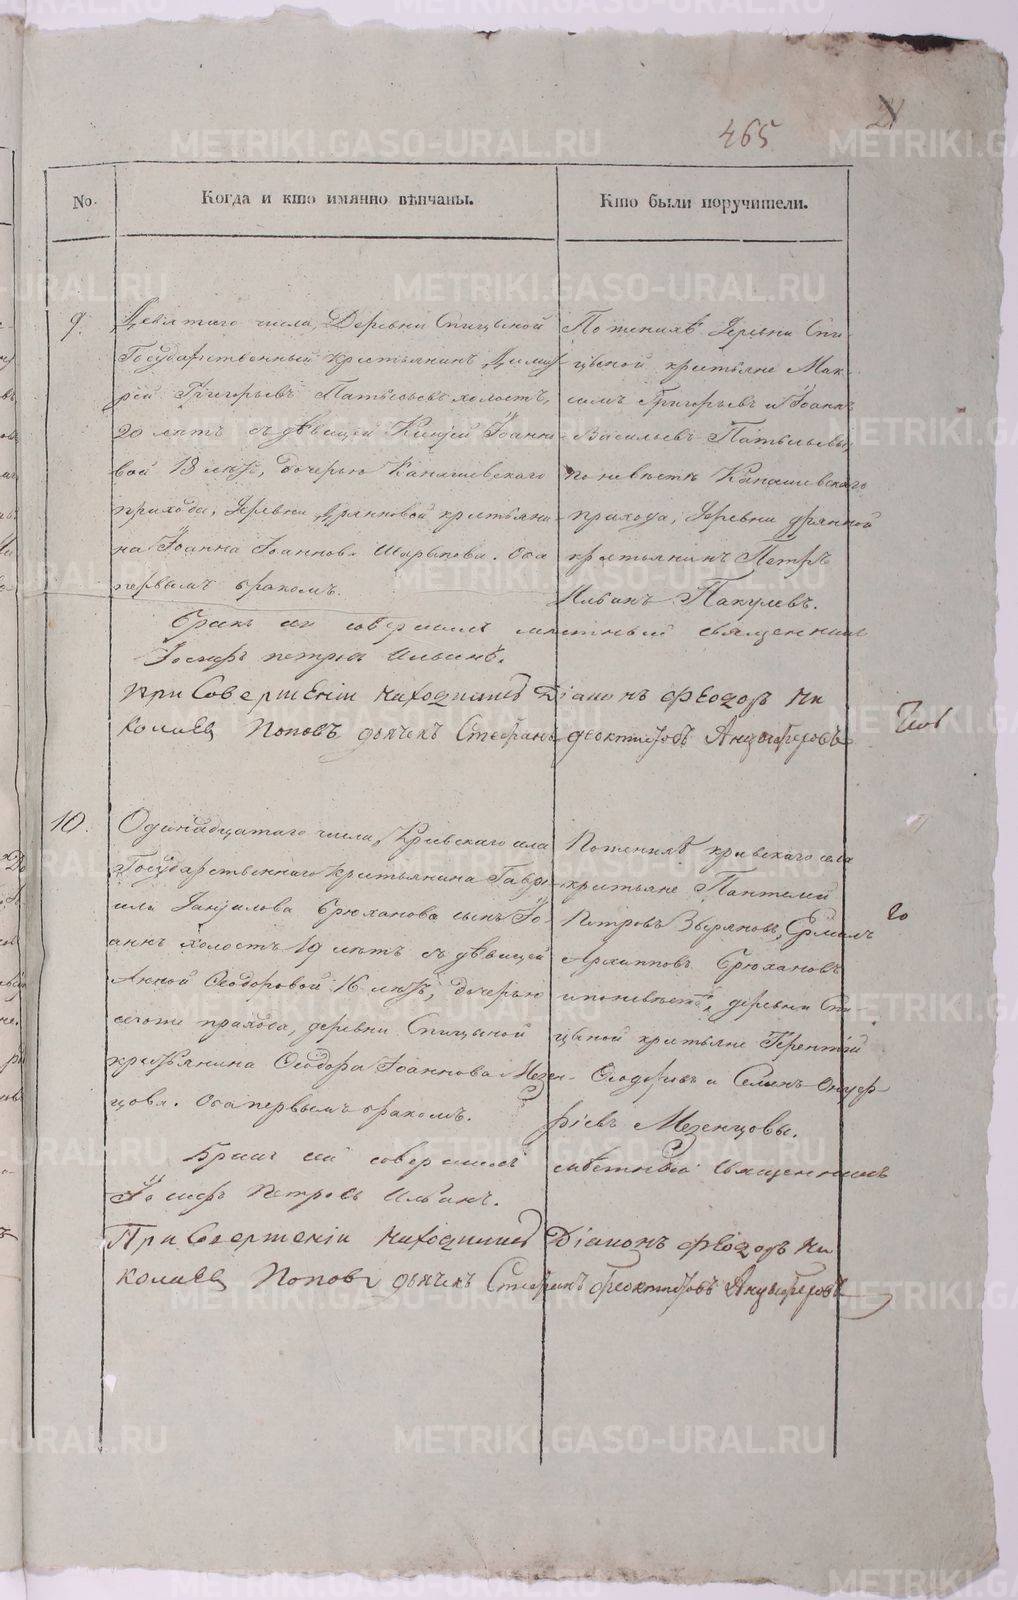 465
21
No.
Когда и кто имянно вѣнчаны.
Кто были поручители.
9.
Девятаго числа, Деревни Спицыной
Государственный крестьянинъ Димит
рій Григорьевъ холостъ,
20 лѣтъ съ дѣвицей Іоанно
вой 18 лѣтъ, дочерью Канашевскаго
прихода, Деревни Дрянновой крестьяни
на Іоанна Іоаннова Шарыпова. Оба
первымъ бракомъ.
По женихѣ Деревни Спи
цыной крестьяне Мак
симъ Григорьевъ и Іоаннъ
Васильевъ
по невѣстѣ Канашевскаго
прихода, Деревни Дрянной
крестьянинъ Петръ
Пакулевъ.
Бракъ сей совершилъ мѣстный священникъ
Іосифъ Петровъ Ильинъ.
При Совершеніи находились Діаконъ Феодоръ Ни
колаевъ Поповъ дьячекъ Стефанъ Феоктистовъ Анцыферовъ
10.
Одинадцатаго числа, Кривскаго села
Государственнаго крестьянина Гаврі
ила Данилова Брюханова сынъ Іо
аннъ холостъ 19 лѣтъ съ дѣвицей
Анной Ѳеодоровой 16 лѣтъ, дочерью
сегоже прихода, деревни Спицыной
крестьянина Ѳеодора Іоаннова Мезен
цова. Оба первымъ бракомъ.
По женихѣ кривскаго села
крестьяне Пантелей
Петровъ Зыряновъ, Ермилъ
Архиповъ Брюхановъ
и по невѣстѣ, деревни Спи
цыной крестьяне Терентій
Ѳеодоровъ и Семенъ Онуф
ріевъ Мезенцовы.
20
Бракъ сей совершилъ мѣстный священникъ
Іосифъ Петровъ Ильинъ.
При Совершеніи находились Діаконъ Феодоръ Ни
колаевъ Поповъ дьячекъ Стефанъ Феоктистовъ Анцыферовъ
METRIKI.GASO-URAL.RU